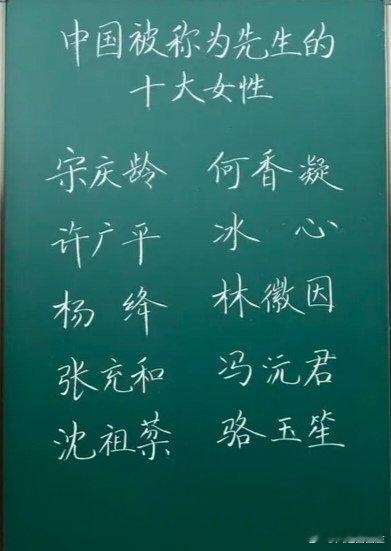 中国被称为先生的
十大女性
宋庆龄 何香凝
许广平 冰 心
杨 绛 林徽因
张充和 冯沅君
沈祖棻 骆玉笙